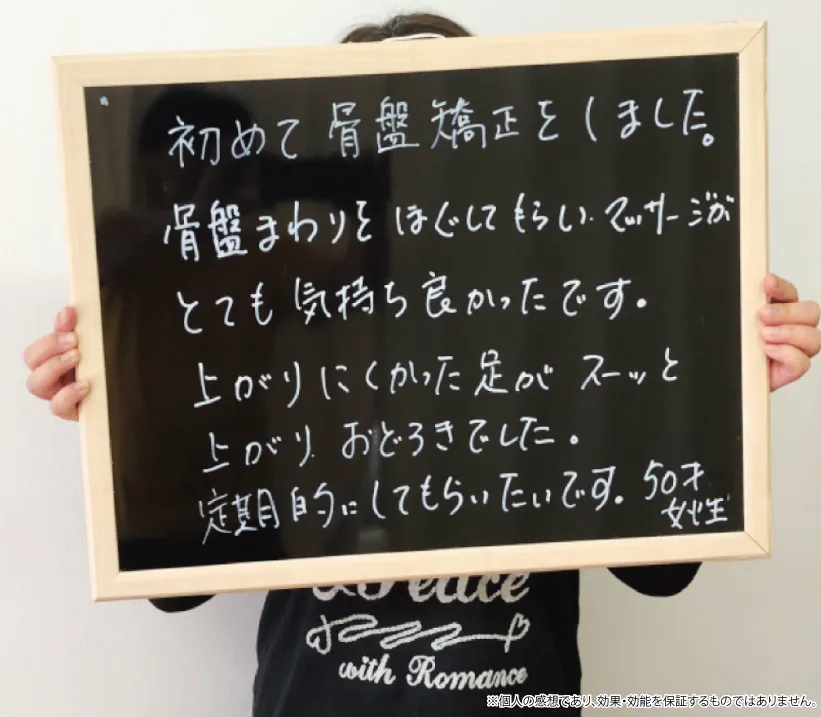 初めて骨盤矯正をしました。
骨盤まわりをほぐしてもらい、マッサージが
とても気持ち良かったです。
上がりにくかった足がスーッと
上がり、おどろきでした。
定期的にしてもらいたいです。50才
女性
& Peace
with Romance
※個人の感想であり、効果・効能を保証するものではありません。